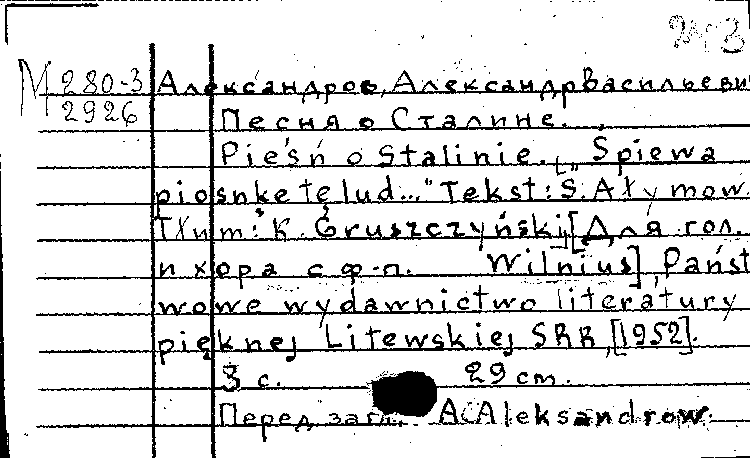 М 280-3
2926
Александров, Александр Васильеви
Песня о Сталине.
Pieśń o Stalinie. [„Śpiewa
piosnkę tę lud..." Tekst: S. Ałymow.
Tłum: K. Gruszczyński] [Для гол.
и хора с ф-п. Wilnius], Państ
wowe wydawnictwo literatury
pięknej Litewskiej SRR, [1952].
3 с. 29 cm.
Перед загл. A. Aleksandrow.